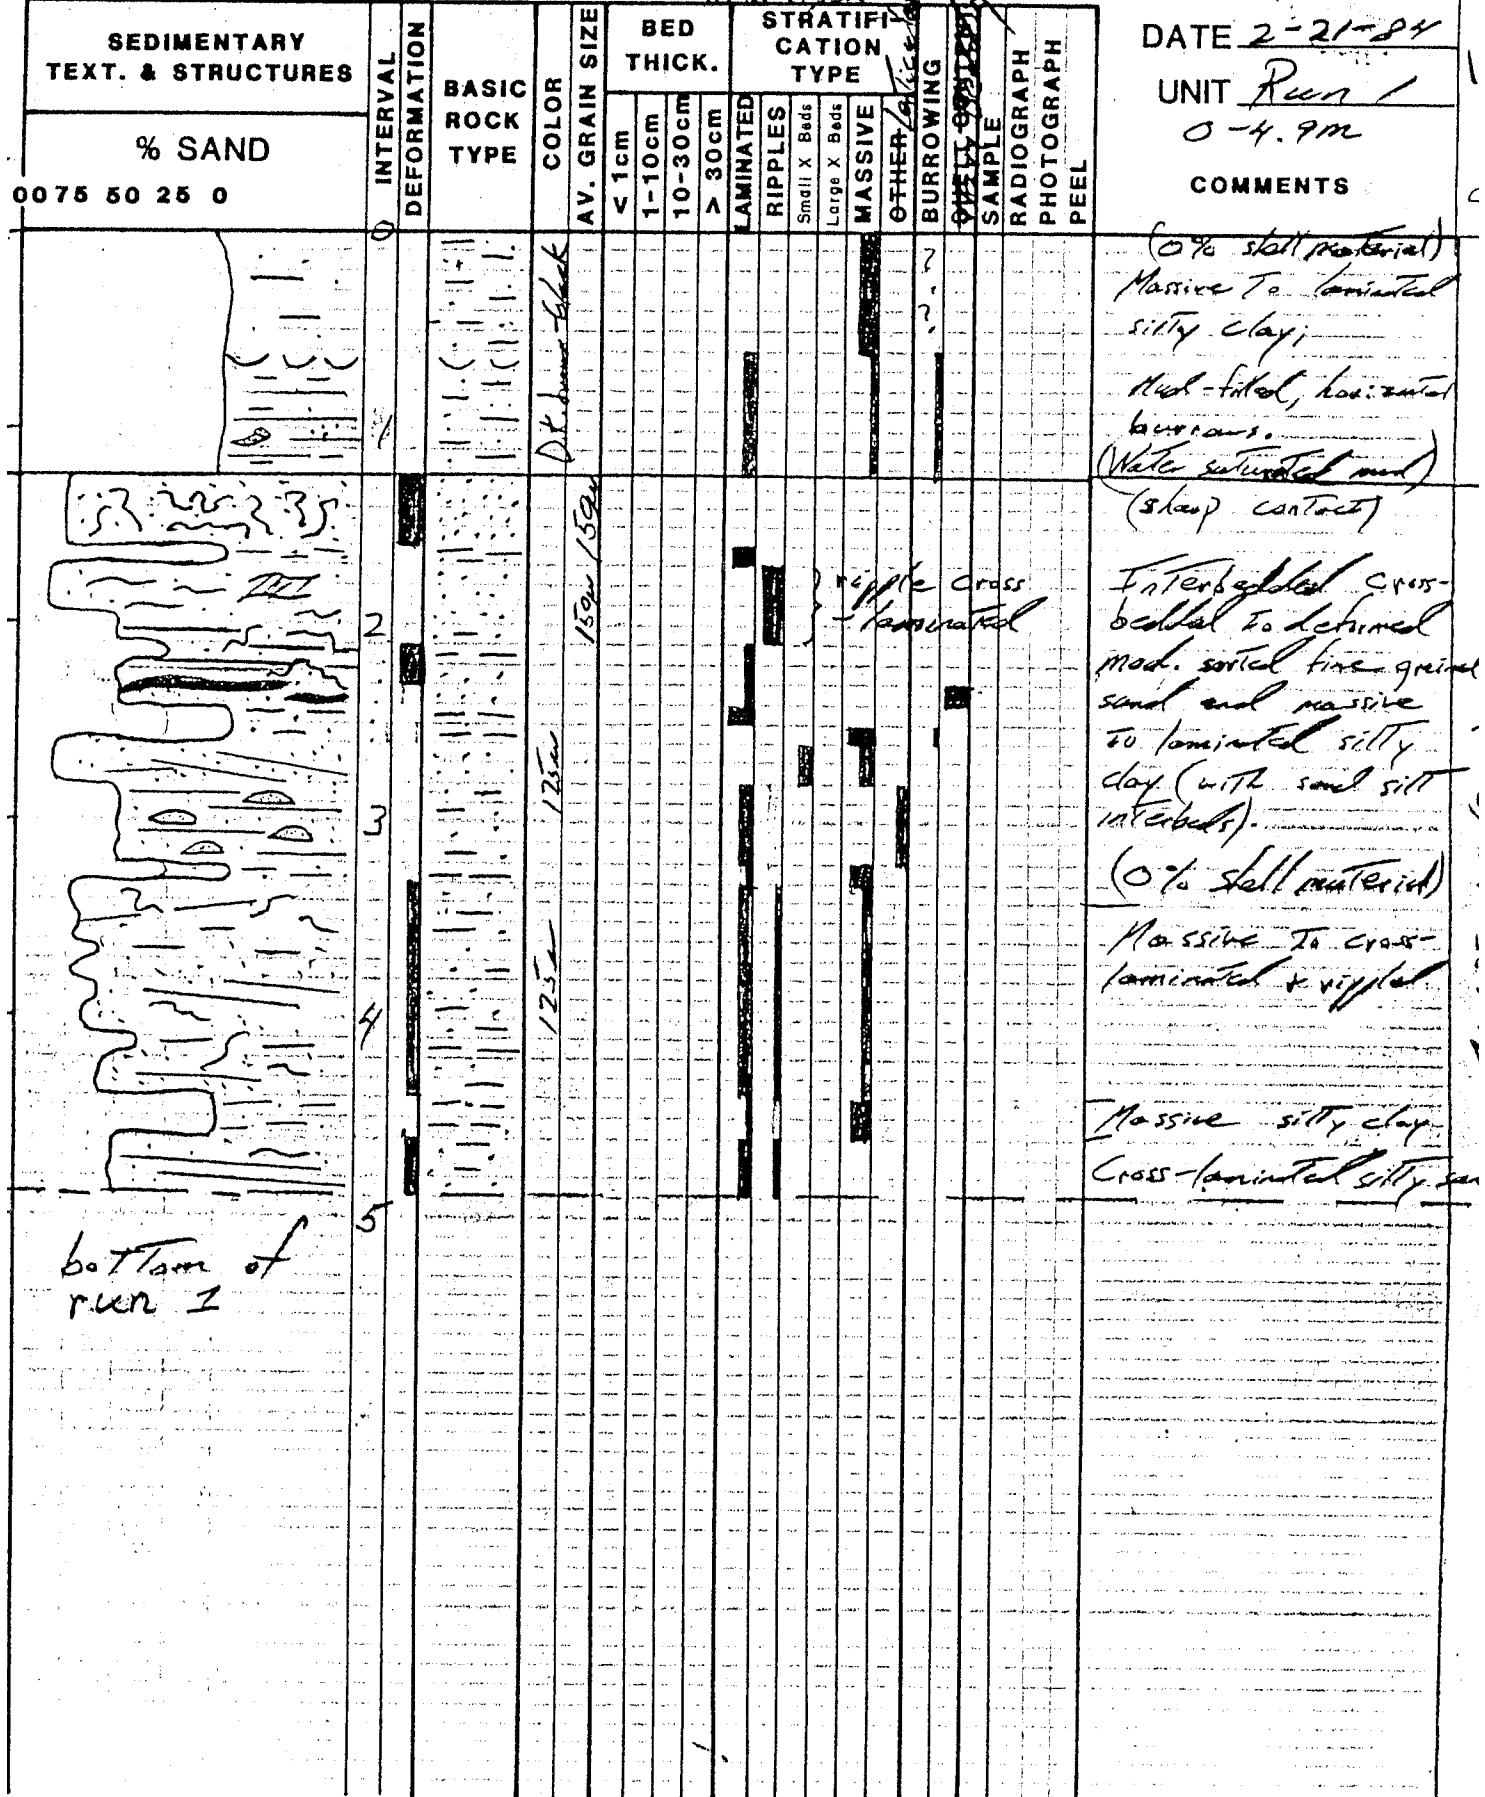 SEDIMENTARY
TEXT. & STRUCTURES
% SAND
0075 50 25 0
INTERVAL
DEFORMATION
BASIC
ROCK
TYPE
COLOR
AV. GRAIN SIZE
BED
THICK.
< 1cm
1-10cm
10-30cm
> 30cm
STRATIFI-
CATION
TYPE
LAMINATED
RIPPLES
Small X Beds
Large X Beds
MASSIVE
OTHER
BURROWING
SAMPLE
RADIOGRAPH
PHOTOGRAPH
PEEL
DATE 2-21-84
UNIT Run 1
0-4.9m
COMMENTS
0
1
2
3
4
5
Dk. brown-black
150µ
150µ
125µ
125µ
?
?
ripple cross
-laminated
(0% shell material)
Massive To laminated
silty clay;
Mud-filled, horizontal
burrows.
(Water saturated mud)
(sharp contact)
Interbedded cross-
bedded to deformed
mod. sorted fine grained
sand and massive
to laminated silty
clay (with sand silt
interbeds).
(0% shell material)
Massive To cross-
laminated & rippled
Massive silty clay
Cross-laminated silty
bottom of
run 1